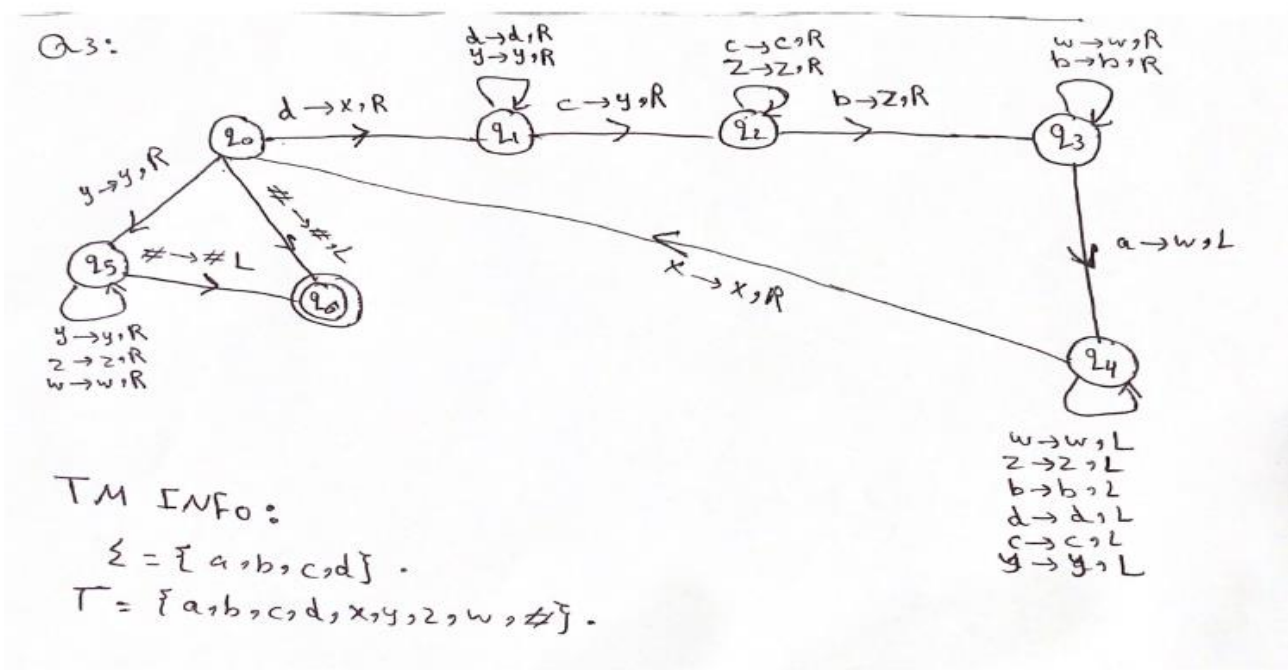 Q3:
d→d,R
y→y,R
c→c,R
z→z,R
w→w,R
b→b,R
d→x,R
c→y,R
b→z,R
q0
q1
q2
q3
y→y,R
#→#,L
a→w,L
x→x,R
q5
#→#L
q6
q4
y→y,R
z→z,R
w→w,R
w→w,L
z→z,L
b→b,L
d→d,L
c→c,L
y→y,L
TM INFO:
Σ = {a,b,c,d}.
Γ = {a,b,c,d,x,y,z,w,#}.